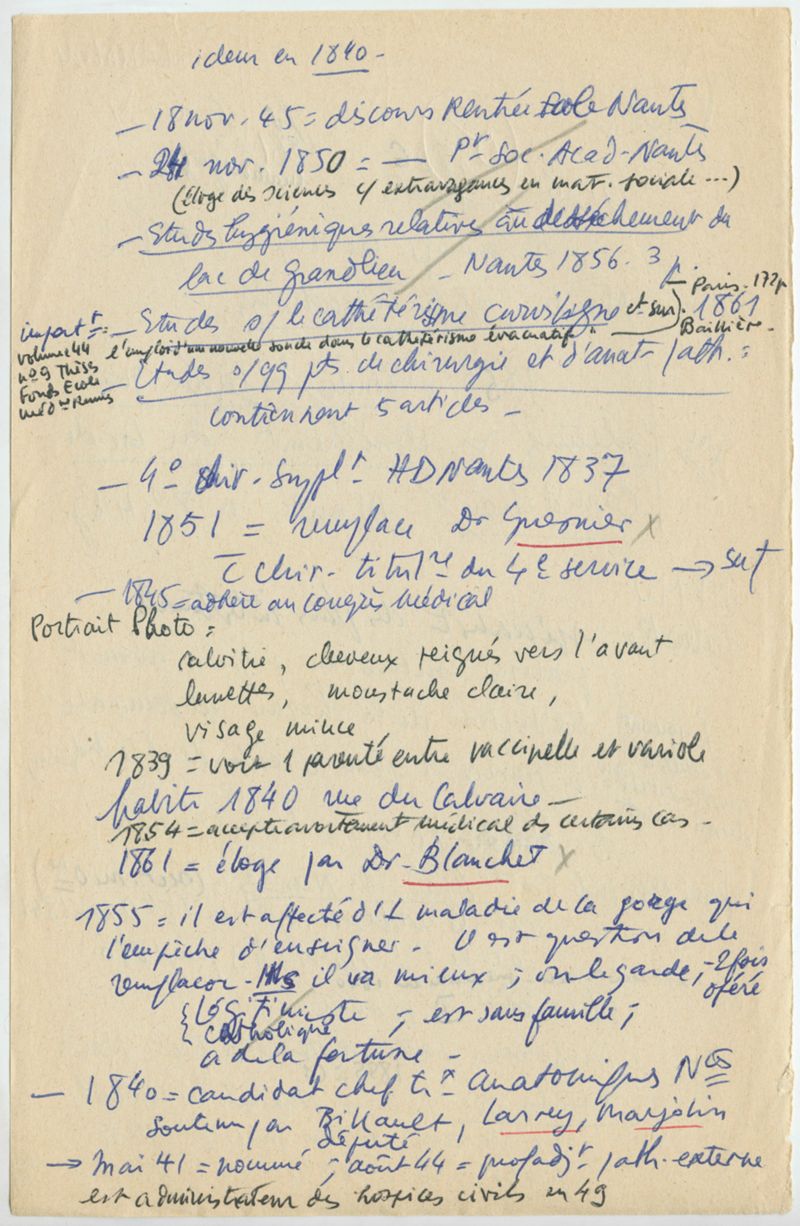 idem en 1840 -
- 18 nov. 45 = discours Rentrée Ecole Nantes
- 24 nov. 1850 = — Pt Soc. Acad. Nantes
(éloge des sciences c/ extravagances en mat. sociale ...)
- Etudes hygiéniques relatives au dessèchement du
lac de Grandlieu - Nantes 1856. 3 p.
- Etudes s/ le cathétérisme curviligne et sur
l'emploi d'une nouvelle sonde dans le cathétérisme évacuatif"
Paris. 172p
1861
Baillière.
import t =
volume 44
n° 9 Thèses
Fonds Ecole
Méd ne Rennes
- Etudes s/ qq pts de chirurgie et d'anat. path. =
contiennent 5 articles -
- 4° chir. suppl t HD Nantes 1837
1851 = remplace Dr Guernier x
c chir. titul re du 4e service →
- 1845 = adhère au congrès médical
Portrait Photo =
calvitie, cheveux peignés vers l'avant
lunettes, moustache claire,
visage mince
1839 = voit 1 parenté entre vaccinelle et variole
habite 1840 rue du Calvaire -
1854 = accepte avortement médical ds certains cas -
1861 = éloge par Dr. Blanchet x
1855 = il est affecté d'1 maladie de la gorge qui
l'empêche d'enseigner. Il est question de le
remplacer - Ms il va mieux ; on le garde ; - 2 fois
opéré
{ Légitimiste ; est sans famille ;
{ catholique
a de la fortune -
- 1840 = candidat chef tr x Anatomiques N tes
soutenu par Billault, Larrey, Marjolin
député
→ Mai 41 = nommé ; août 44 = prof adj t path. externe
est administrateur des hospices civils en 49